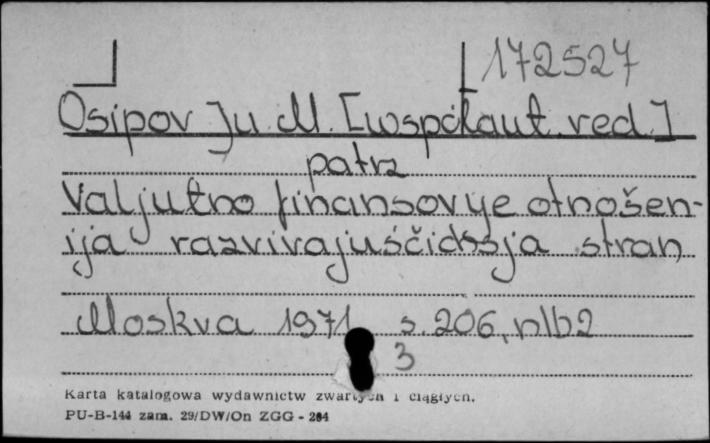 172527
Osipov Ju. M. [współaut. red.]
patrz
Valjutno finansovye otnošen-
ija razvivajuščidsja stran
Moskva 1971 s. 206, nlb 2
3
Karta katalogowa wydawnictw zwartych i ciągłych.
PU-B-144 zam. 29/DW/On ZGG - 284